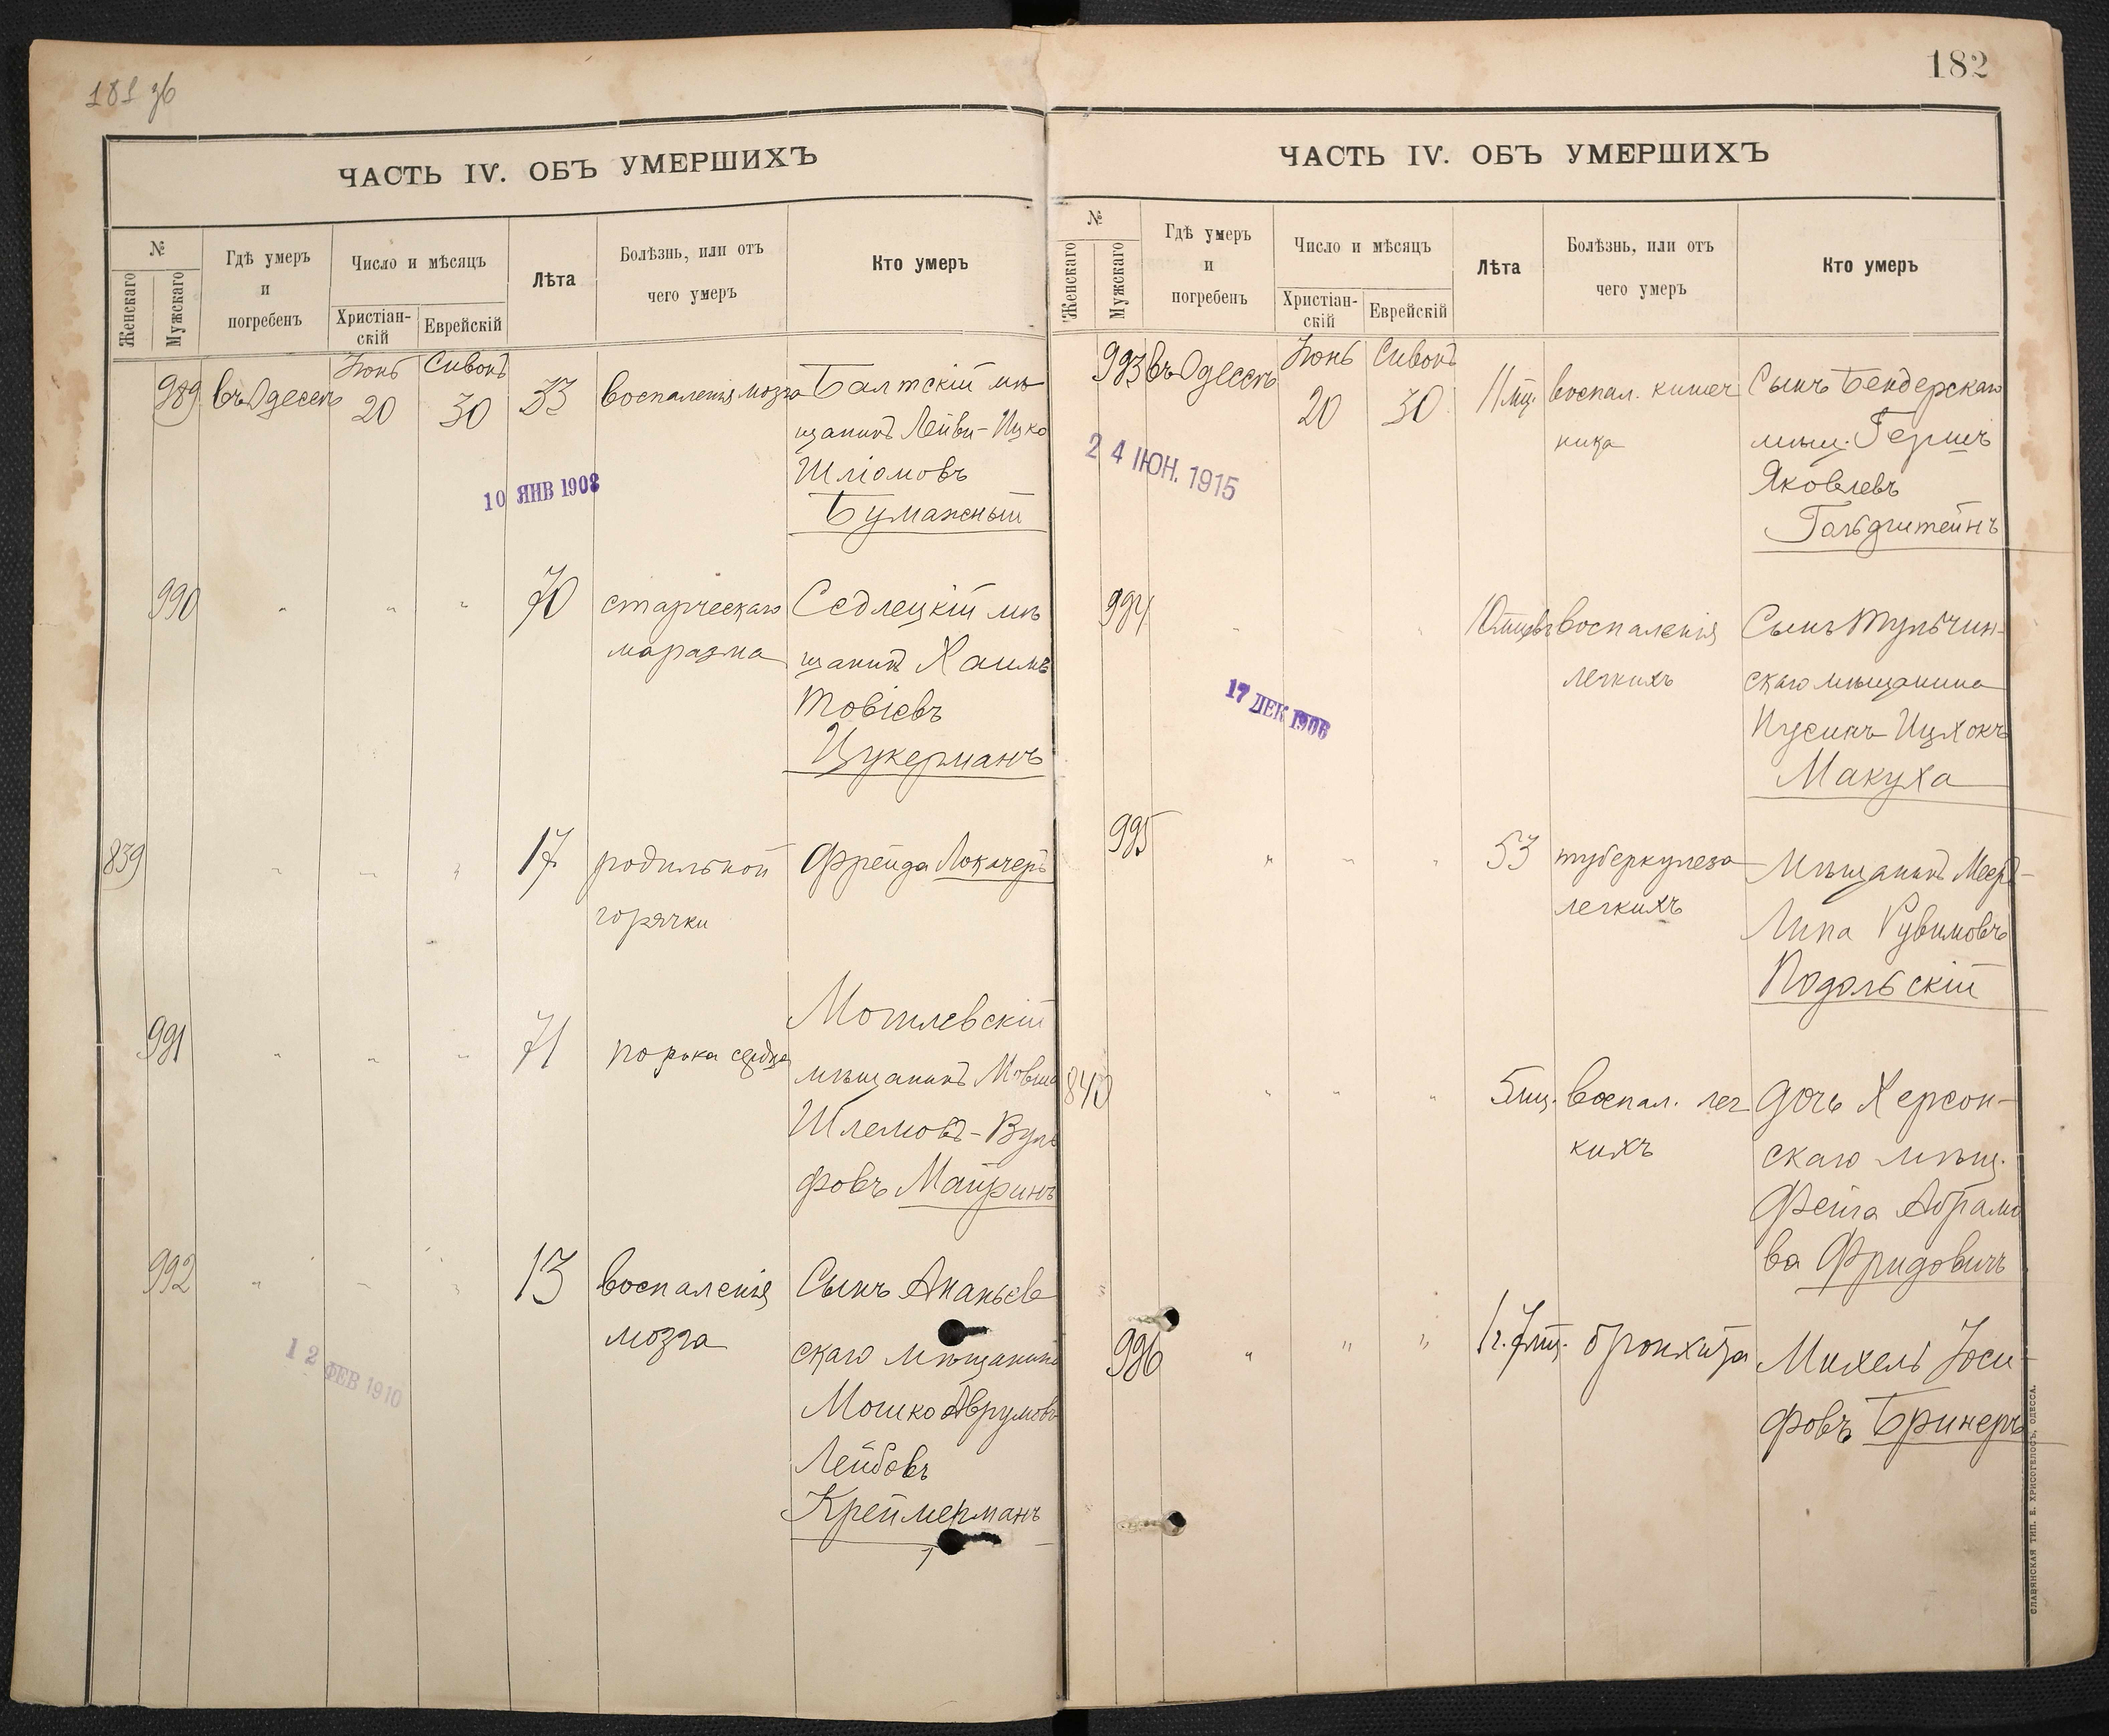 181 об
ЧАСТЬ IV. ОБЪ УМЕРШИХЪ
№
Женскаго
Мужскаго
Гдѣ умеръ
и
погребенъ
Число и мѣсяцъ
Христіан-
скій
Еврейскій
Лѣта
Болѣзнь, или отъ
чего умеръ
Кто умеръ
989 въ Одессѣ Іюнь 20 Сивонъ 30 33 воспаленія мозга Балтскій мѣ
щанинъ Лейви-Ицко
Шліомовъ
Бумажный
10 ЯНВ 1908
990 " " " 70 старческаго Седлецкій мѣ
маразма щанинъ Хаимъ
Товіевъ
Цукерманъ
839 " " " 17 родильной Фрейда Локачеръ
горячки
Могилевскій
991 " " " 71 порока сердца
мѣщанинъ Мовша
Шлемовъ-Вуль
фовъ Майринъ
992 " " " 13 воспаленія Сынъ Ананьев
мозга скаго мѣщанина
12 ФЕВ 1910
Мошко Аврумовъ
Лейбовъ
Креймерманъ
182
ЧАСТЬ IV. ОБЪ УМЕРШИХЪ
№
Женскаго
Мужскаго
Гдѣ умеръ
и
погребенъ
Число и мѣсяцъ
Христіан-
скій
Еврейскій
Лѣта
Болѣзнь, или отъ
чего умеръ
Кто умеръ
993 въ Одессѣ Іюнь 20 Сивонъ 30 11 мц. воспал. кишеч Сынъ Бендерскаго
ника мѣщ. Гершъ
24 ІЮН. 1915
Яковлевъ
Гольдштейнъ
994 " " 10 мцевъ воспаленія Сынъ Тульчин-
легкихъ скаго мѣщанина
17 ДЕК 1906
Нусинъ Ицхокъ
Макуха
995 " " " 53 туберкулеза Мѣщанинъ Меер-
легкихъ Липа Рувимовъ
Подольскій
840 " " " 5 мц. воспал. лег дочь Херсон-
кихъ скаго мѣщ.
Фейга Абрамо
ва Фридовичъ
996 " " " 1 г. 7 мц. бронхита Михель Іоси-
фовъ Бринеръ
СЛАВЯНСКАЯ ТИП. Е. ХРИСОГЕЛОСЪ, ОДЕССА.